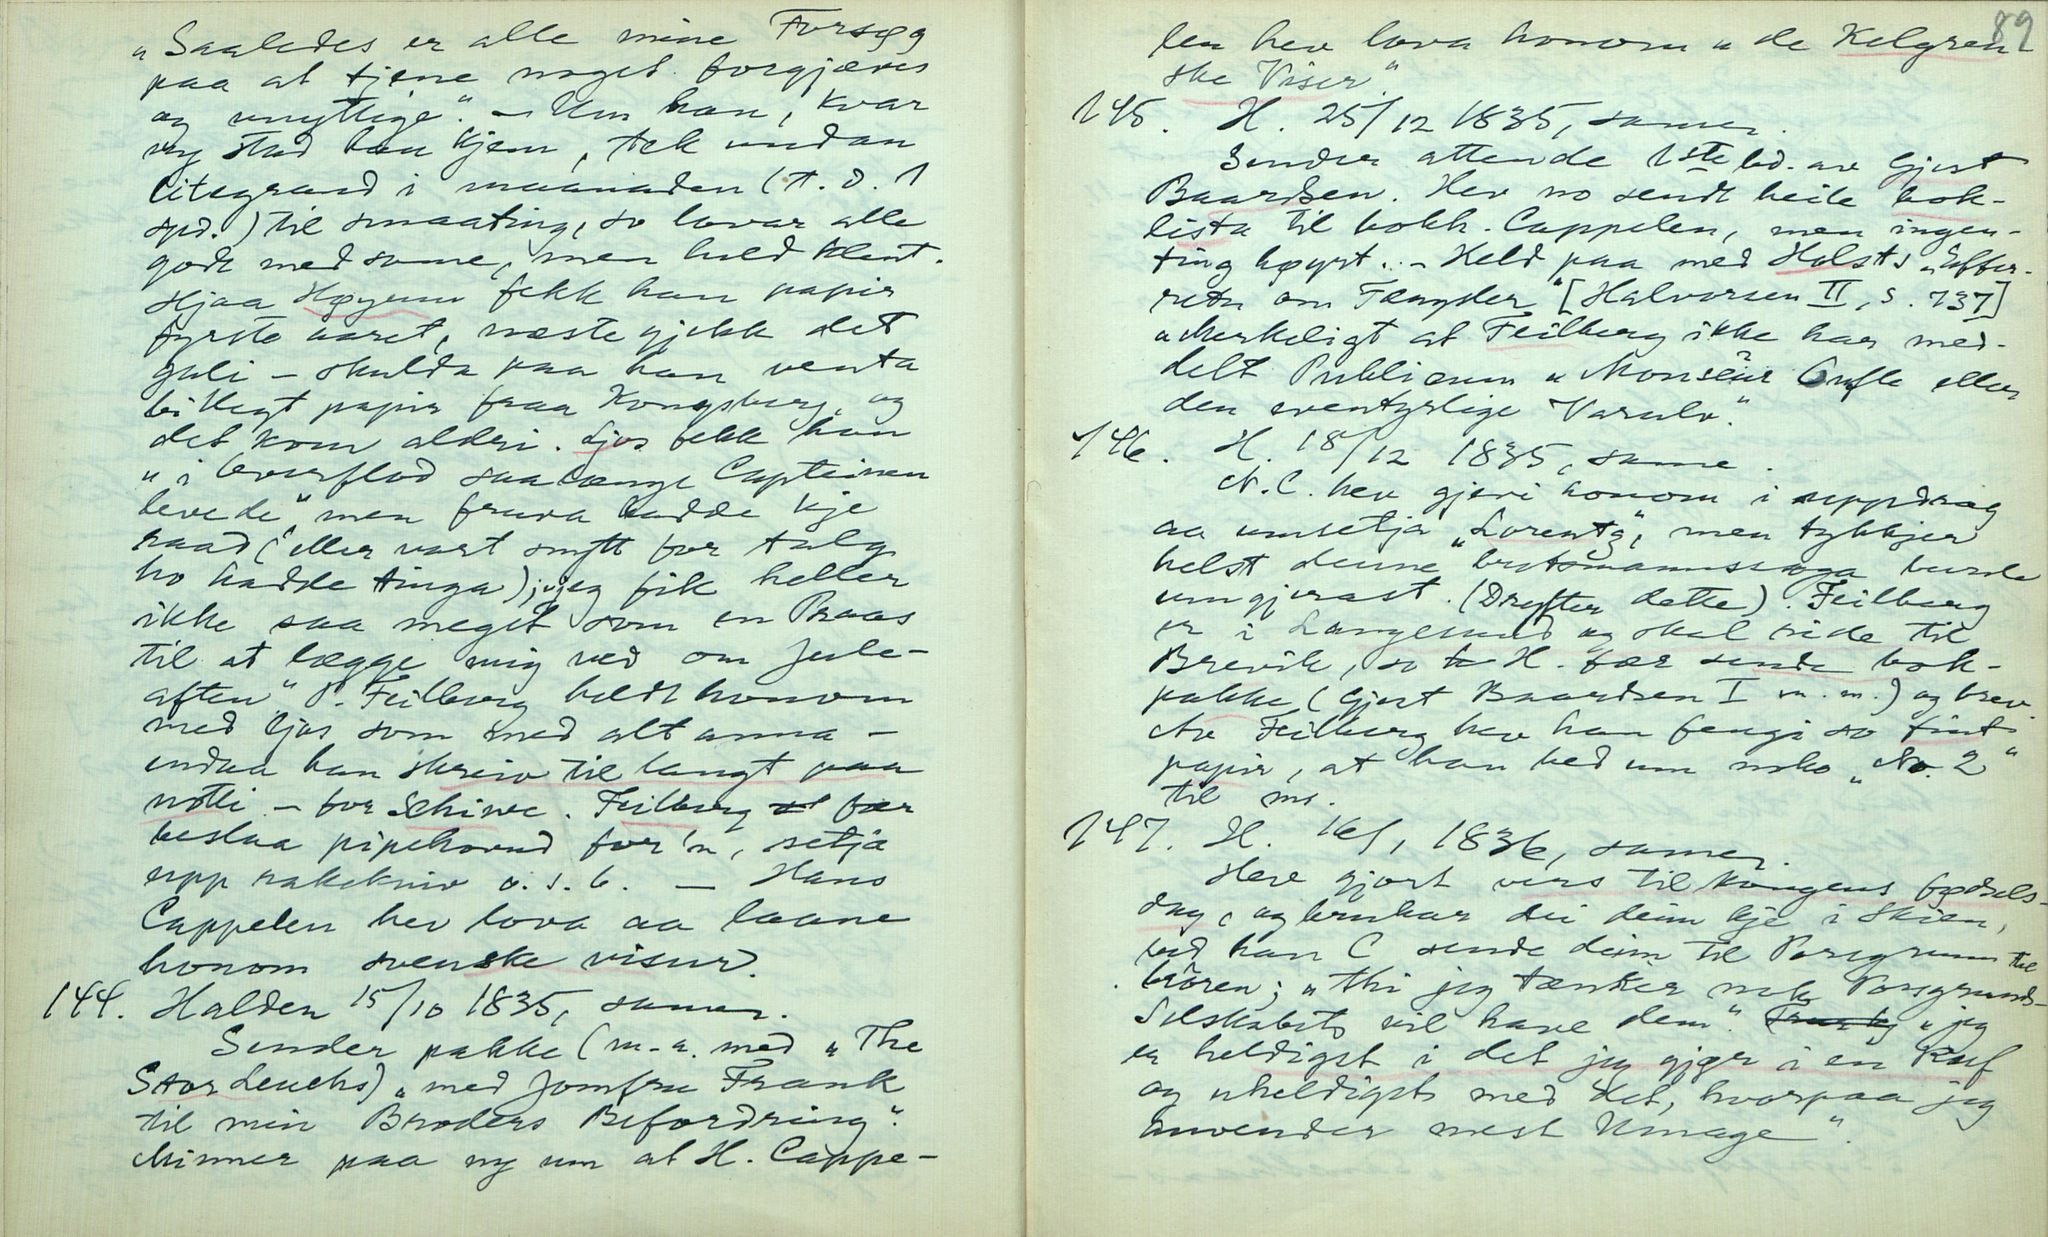 „Saaledes er alle mine Forsøg
paa at tjene noget forgjæves
og unyttige." – Um han, kvar
ny stad han kjem, tek undan
litegrand i maanaden (t. d. 1
spd.) til smaating, so lovar alle
godt med same, men held klent.
Hjaa Høyum fekk han papir
fyrste aaret, næste gjekk det
gali – skulda paa han venta
billegt papir fraa Kongsberg, og
det kom aldri. Ljos fekk han
„i Overflod saalænge Capteinen
levede", men fruva hadde kje
raad (eller vart snytt for talg
ho hadde tinga); „jeg fik heller
ikke saa meget som en Praas
til at lægge mig ved om Jule-
aften". P. Feilberg heldt honom
med ljos som med alt anna –
endaa han skreiv til langt paa
notti – for Schiwe. Feilberg fær
beslaa pipehovud for'n, setja
upp rakekniv o.s.b. – Hans
Cappelen hev lova aa laane
honom svenske visur.
144. Halden 15/10 1835, samen.
Sender pakke (m. a. med „The
Stor Leuchs) „med Jomfru Frank
til min Broders Befordring".
Minner paa ny um at H. Cappe-
89
len hev lova honom „de Kelgren-
ske Viser"
145. H. 25/12 1835, samen.
Sender attende 1ste bd. av Gjest
Baardsen. Hev no sendt heile bok-
lista til bokh. Cappelen, men ingen-
ting høyrt. – Held paa med Holsts „Efter-
retn om Fængsler" [Halvorsen II, s. 737]
„Merkeligt at Feilberg ikke har med-
delt Publicum „Monsieur       eller
den eventyrlige Varulv".
146. H. 18/12 1835, same.
N. C. hev gjevi honom i uppdrag
aa umsetja „Lorentz", men tykkjer
helst denne brotsmannssoga burde
umgjerast. (Drøfter dette). Feilberg
er i Langesund og skal ride til
Brevik, so H. fær sende bok-
pakke (Gjest Baardsen I m. m.) og brev.
Av Feilberg hev han fengi so fint
papir, at han bed um noko „No. 2"
til ms.
147. H. 16/1 1836, samen.
Hev gjort vers til Kongens fødsels-
dag, og brukar dei deim kje i Skien,
bed han C sende deim til Porsgrunn til
bróren; „thi jeg tænker nok Porsgrunds-
Selskabet vil have dem". „jeg
er heldigst i det jeg gjør i en Ruf
og uheldigst med det, hvorpaa jeg
anvender mest Umage".